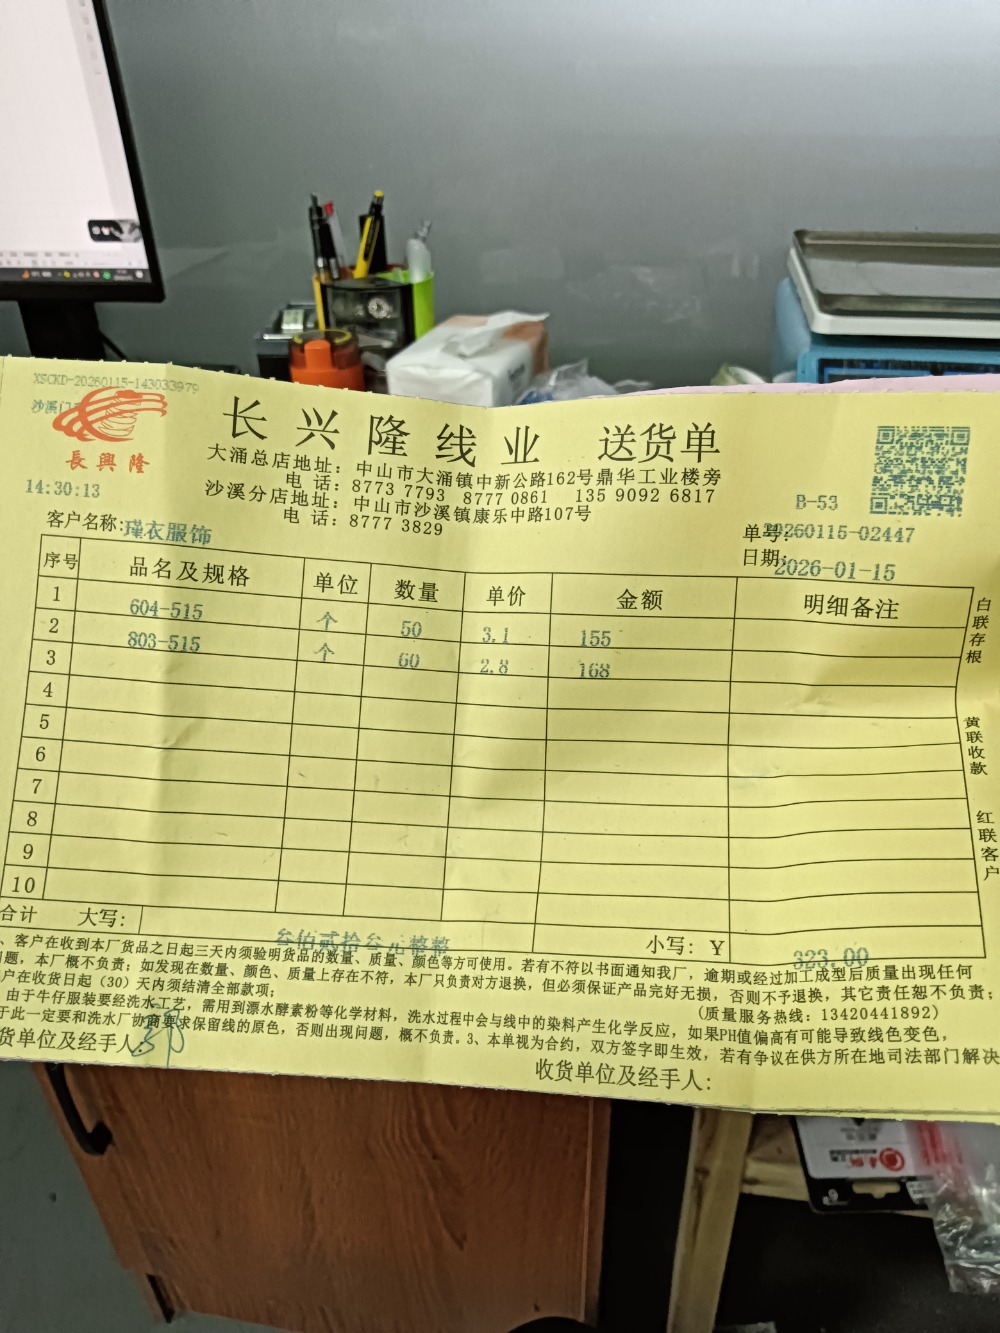 XSCKD-20260115-143033979
沙溪门
長興隆
14:30:13
长兴隆线业 送货单
大涌总店地址：中山市大涌镇中新公路162号鼎华工业楼旁
电 话：8773 7793 8777 0861 135 9092 6817
沙溪分店地址：中山市沙溪镇康乐中路107号
电 话：8777 3829
B-53
客户名称:瑾衣服饰
单号:20260115-02447
日期:2026-01-15
序号 品名及规格 单位 数量 单价 金额 明细备注
1 604-515 个 50 3.1 155
2 803-515 个 60 2.8 168
3
4
5
6
7
8
9
10
合计 大写: 叁佰贰拾叁元整整 小写: Y 323.00
、客户在收到本厂货品之日起三天内须验明货品的数量、质量、颜色等方可使用。若有不符以书面通知我厂，逾期或经过加工成型后质量出现任何
问题，本厂概不负责；如发现在数量、颜色、质量上存在不符，本厂只负责对方退换，但必须保证产品完好无损，否则不予退换，其它责任恕不负责；
户在收货日起（30）天内须结清全部款项；
(质量服务热线：13420441892)
由于牛仔服装要经洗水工艺，需用到漂水酵素粉等化学材料，洗水过程中会与线中的染料产生化学反应，如果PH值偏高有可能导致线色变色，
于此一定要和洗水厂协商要求保留线的原色，否则出现问题，概不负责。3、本单视为合约，双方签字即生效，若有争议在供方所在地司法部门解决
货单位及经手人:
收货单位及经手人:
白联存根
黄联收款
红联客户